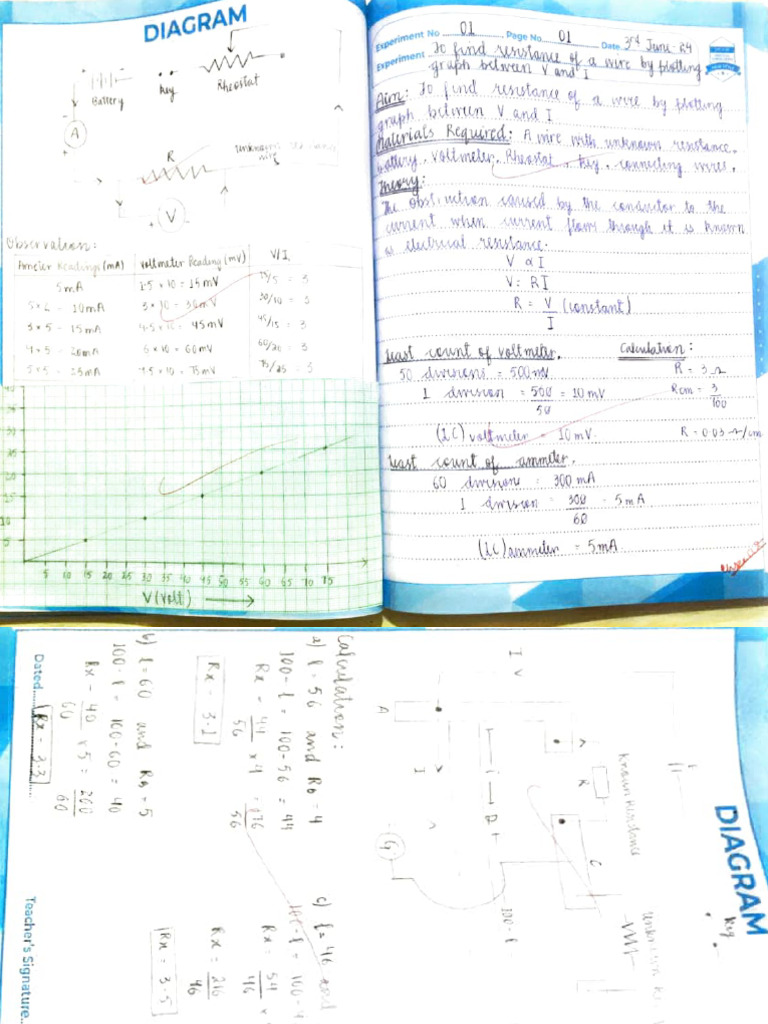 DIAGRAM
Battery
Key
Rheostat
A
+
-
R
Unknown
wire
V
Observation:
Ameter Readings (mA) Voltmeter Reading (mV) V/I
5mA 1.5 × 10 = 15mV 15/5 = 3
5×2 = 10mA 3 × 10 = 30mV 30/10 = 3
3×5 = 15mA 4.5 × 10 = 45mV 45/15 = 3
4×5 = 20mA 6 × 10 = 60mV 60/20 = 3
5×5 = 25mA 7.5 × 10 = 75mV 75/25 = 3
35
30
25
20
15
10
5
5 10 15 20 25 30 35 40 45 50 55 60 65 70 75
V(Volt)
Experiment No. 01 Page No. 01 Date 3rd June-24
Experiment To find resistance of a wire by plotting
graph between V and I
Aim: To find resistance of a wire by plotting
graph between V and I
Materials Required: A wire with unknown resistance,
battery, voltmeter, Rheostat, Key, connecting wires,
Theory:
The obstruction caused by the conductor to the
current when current flows through it is known
as electrical resistance.
V ∝ I
V = RI
R = V/I (constant)
Least count of voltmeter. Calculation:
50 divisions = 500mV R = 3 Ω
1 division = 500/50 = 10 mV Rcm = 3/100
(LC) voltmeter = 10mV. R = 0.03 Ω/cm
Least count of ammeter.
60 divisions = 300mA
1 division = 300/60 = 5mA
(LC) ammeter = 5mA
DIAGRAM
Key
Known Resistance
Unknown
R
A
I
V
G
100-l
Calculation:
a) l = 56 and Rb = 4
100-l = 100-56 = 44
Rx = 44/56 × 4 = 176/56
Rx = 3.1
b) l = 60 and Rb = 5
100-l = 100-60 = 40
Rx = 40/60 × 5 = 200/60
Rx = 3.3
c) l = 46 and
100-l = 100-4
Rx = 54/46 ×
Rx = 216/46
Rx = 3.5
Dated
Teacher's Signature